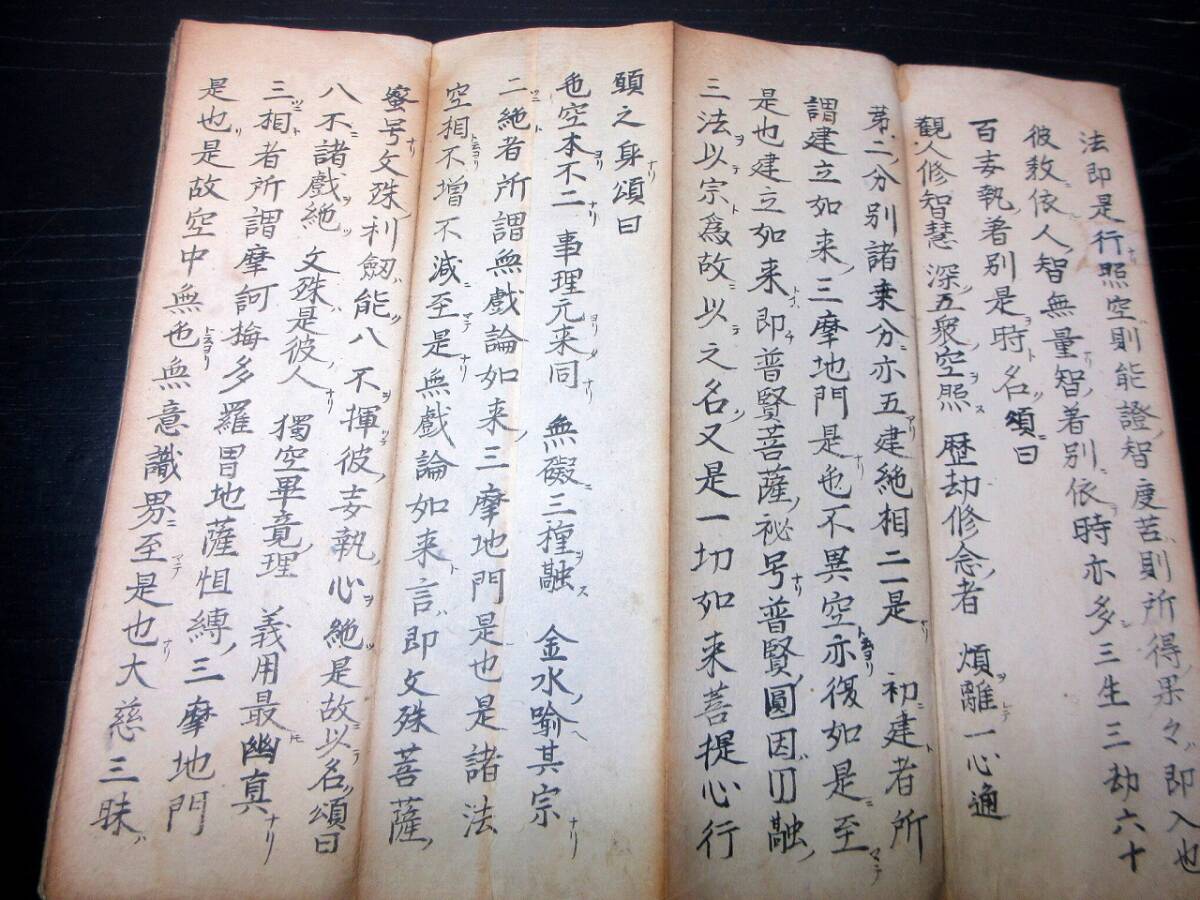 法即是行照空則能證智度苦則所得果々即入也
彼教依人智無量智著別依時亦多三生三劫六十
百妄執著別是時名頌曰
観人修智慧 深五衆空照 歴劫修念者 煩離一心通
第二分別諸乗分亦五建絶相二一是 初建者所
謂建立如来三摩地門是也不異空亦復如是至
是也建立如来即普賢菩薩秘号普賢圓因円融
三法以宗為故以之名又是一切如来菩提心行
願之身頌曰
色空本不二 事理元来同 無礙三種融 金水喩其宗
二絶者所謂無戯論如来三摩地門是也是諸法
空相不増不減至是無戯論如来言即文殊菩薩
蜜号文殊利劔能八不揮彼妄執心絶是故以名頌曰
八不諸戯絶 文殊是彼人 獨空畢竟理 義用最幽真
三相者所謂摩訶梅多羅冒地薩怛縛三摩地門
是也是故空中無色無意識界至是也大慈三昧